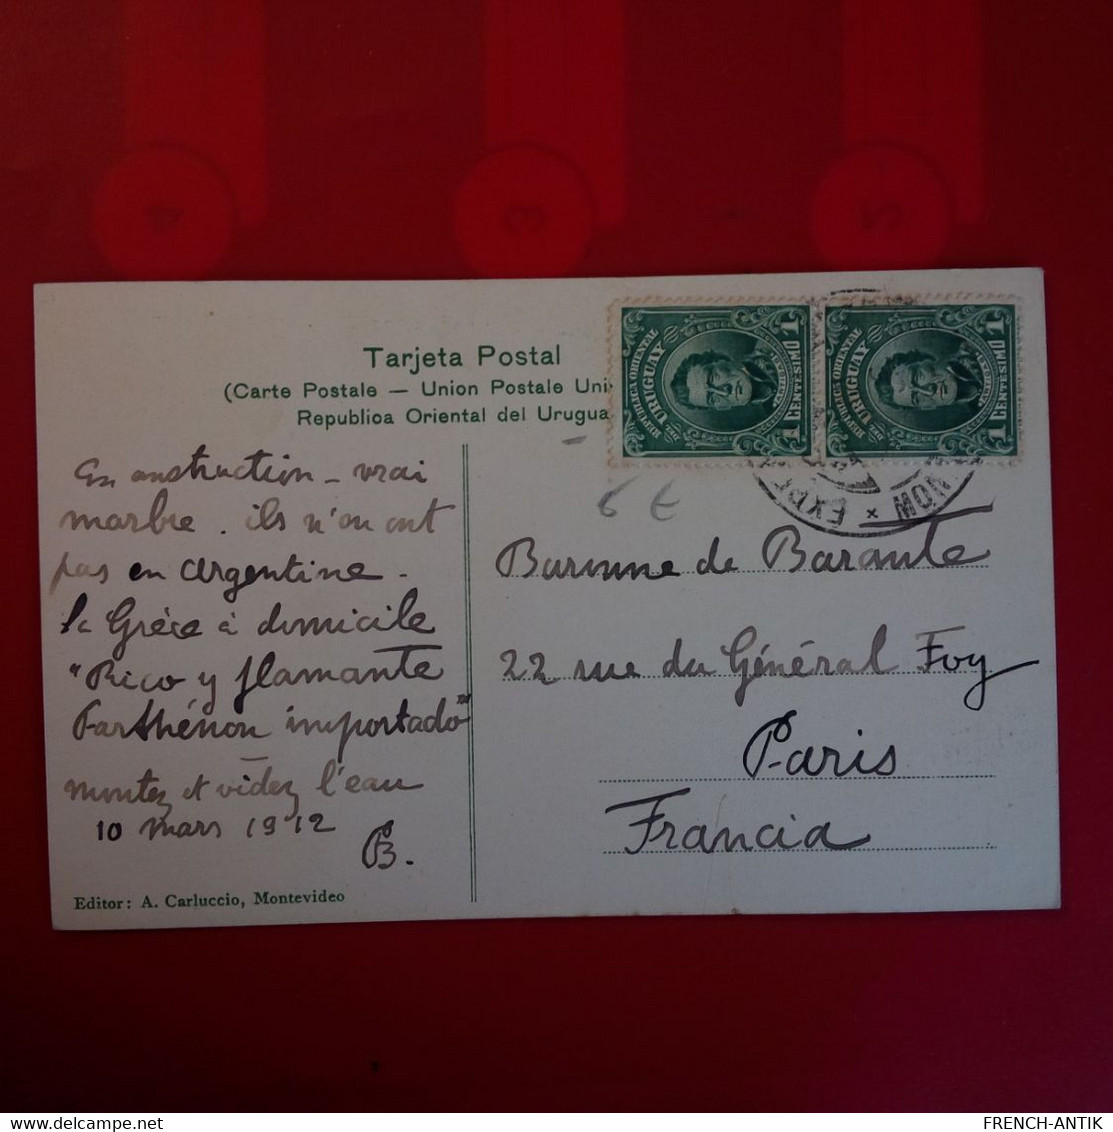 Tarjeta Postal
(Carte Postale — Union Postale Uni
Republica Oriental del Urugua
REPUBLICA ORIENTAL
DEL URUGUAY
1 CENTESIMO 1
REPUBLICA ORIENTAL
DEL URUGUAY
1 CENTESIMO 1
EXPE
×
MON
6 €
En construction – vrai
marbre . ils n'en ont
pas en argentine –
la Grèce à domicile
"Rico y flamante
Parthénon importado"
montez et videz l'eau
10 mars 1912
B.
Baronne de Barante
22 rue du Général Foy
Paris
Francia
Editor: A. Carluccio, Montevideo
4
3
5
FRENCH-ANTIK